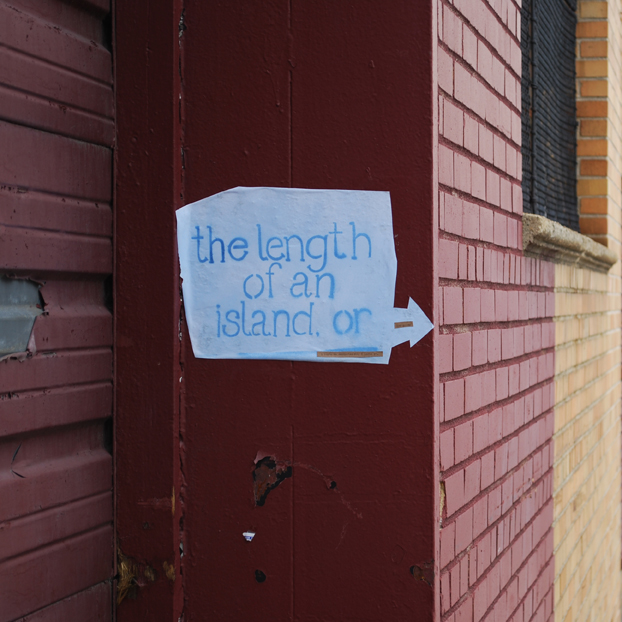 the length
of an
island. or